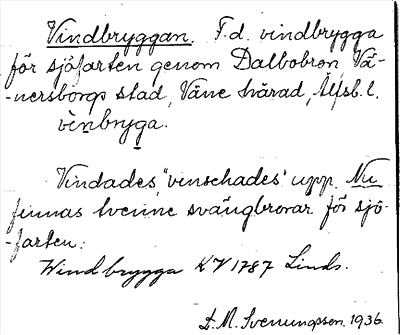 Vindbryggan. F.d. vindbrygga
för sjöfarten genom Dalbobron Vä-
-nersborgs stad, Väne härad, Älfsb. l.
vènbryga.
Vindades, "vinschades" upp. Nu
finnas tvenne svängbroar för sjö-
-farten.
Windbrygga KV 1787 Linds.
E. M. Svenungsson. 1936.